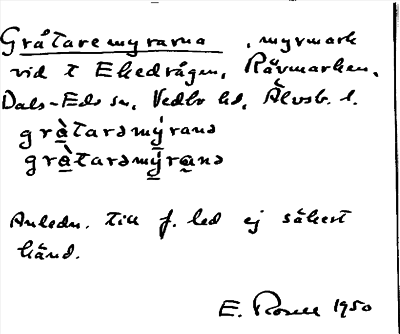 Gråtaremyrarna, myrmark
vid t Ekedrågen, Rävmarken,
Dals-Eds sn, Vedbo hd, Älvsb. l.
gràtarəmýranə
gràtarəmýranə
Anledn. till f. led ej säkert
känd.
E. Rosell 1950